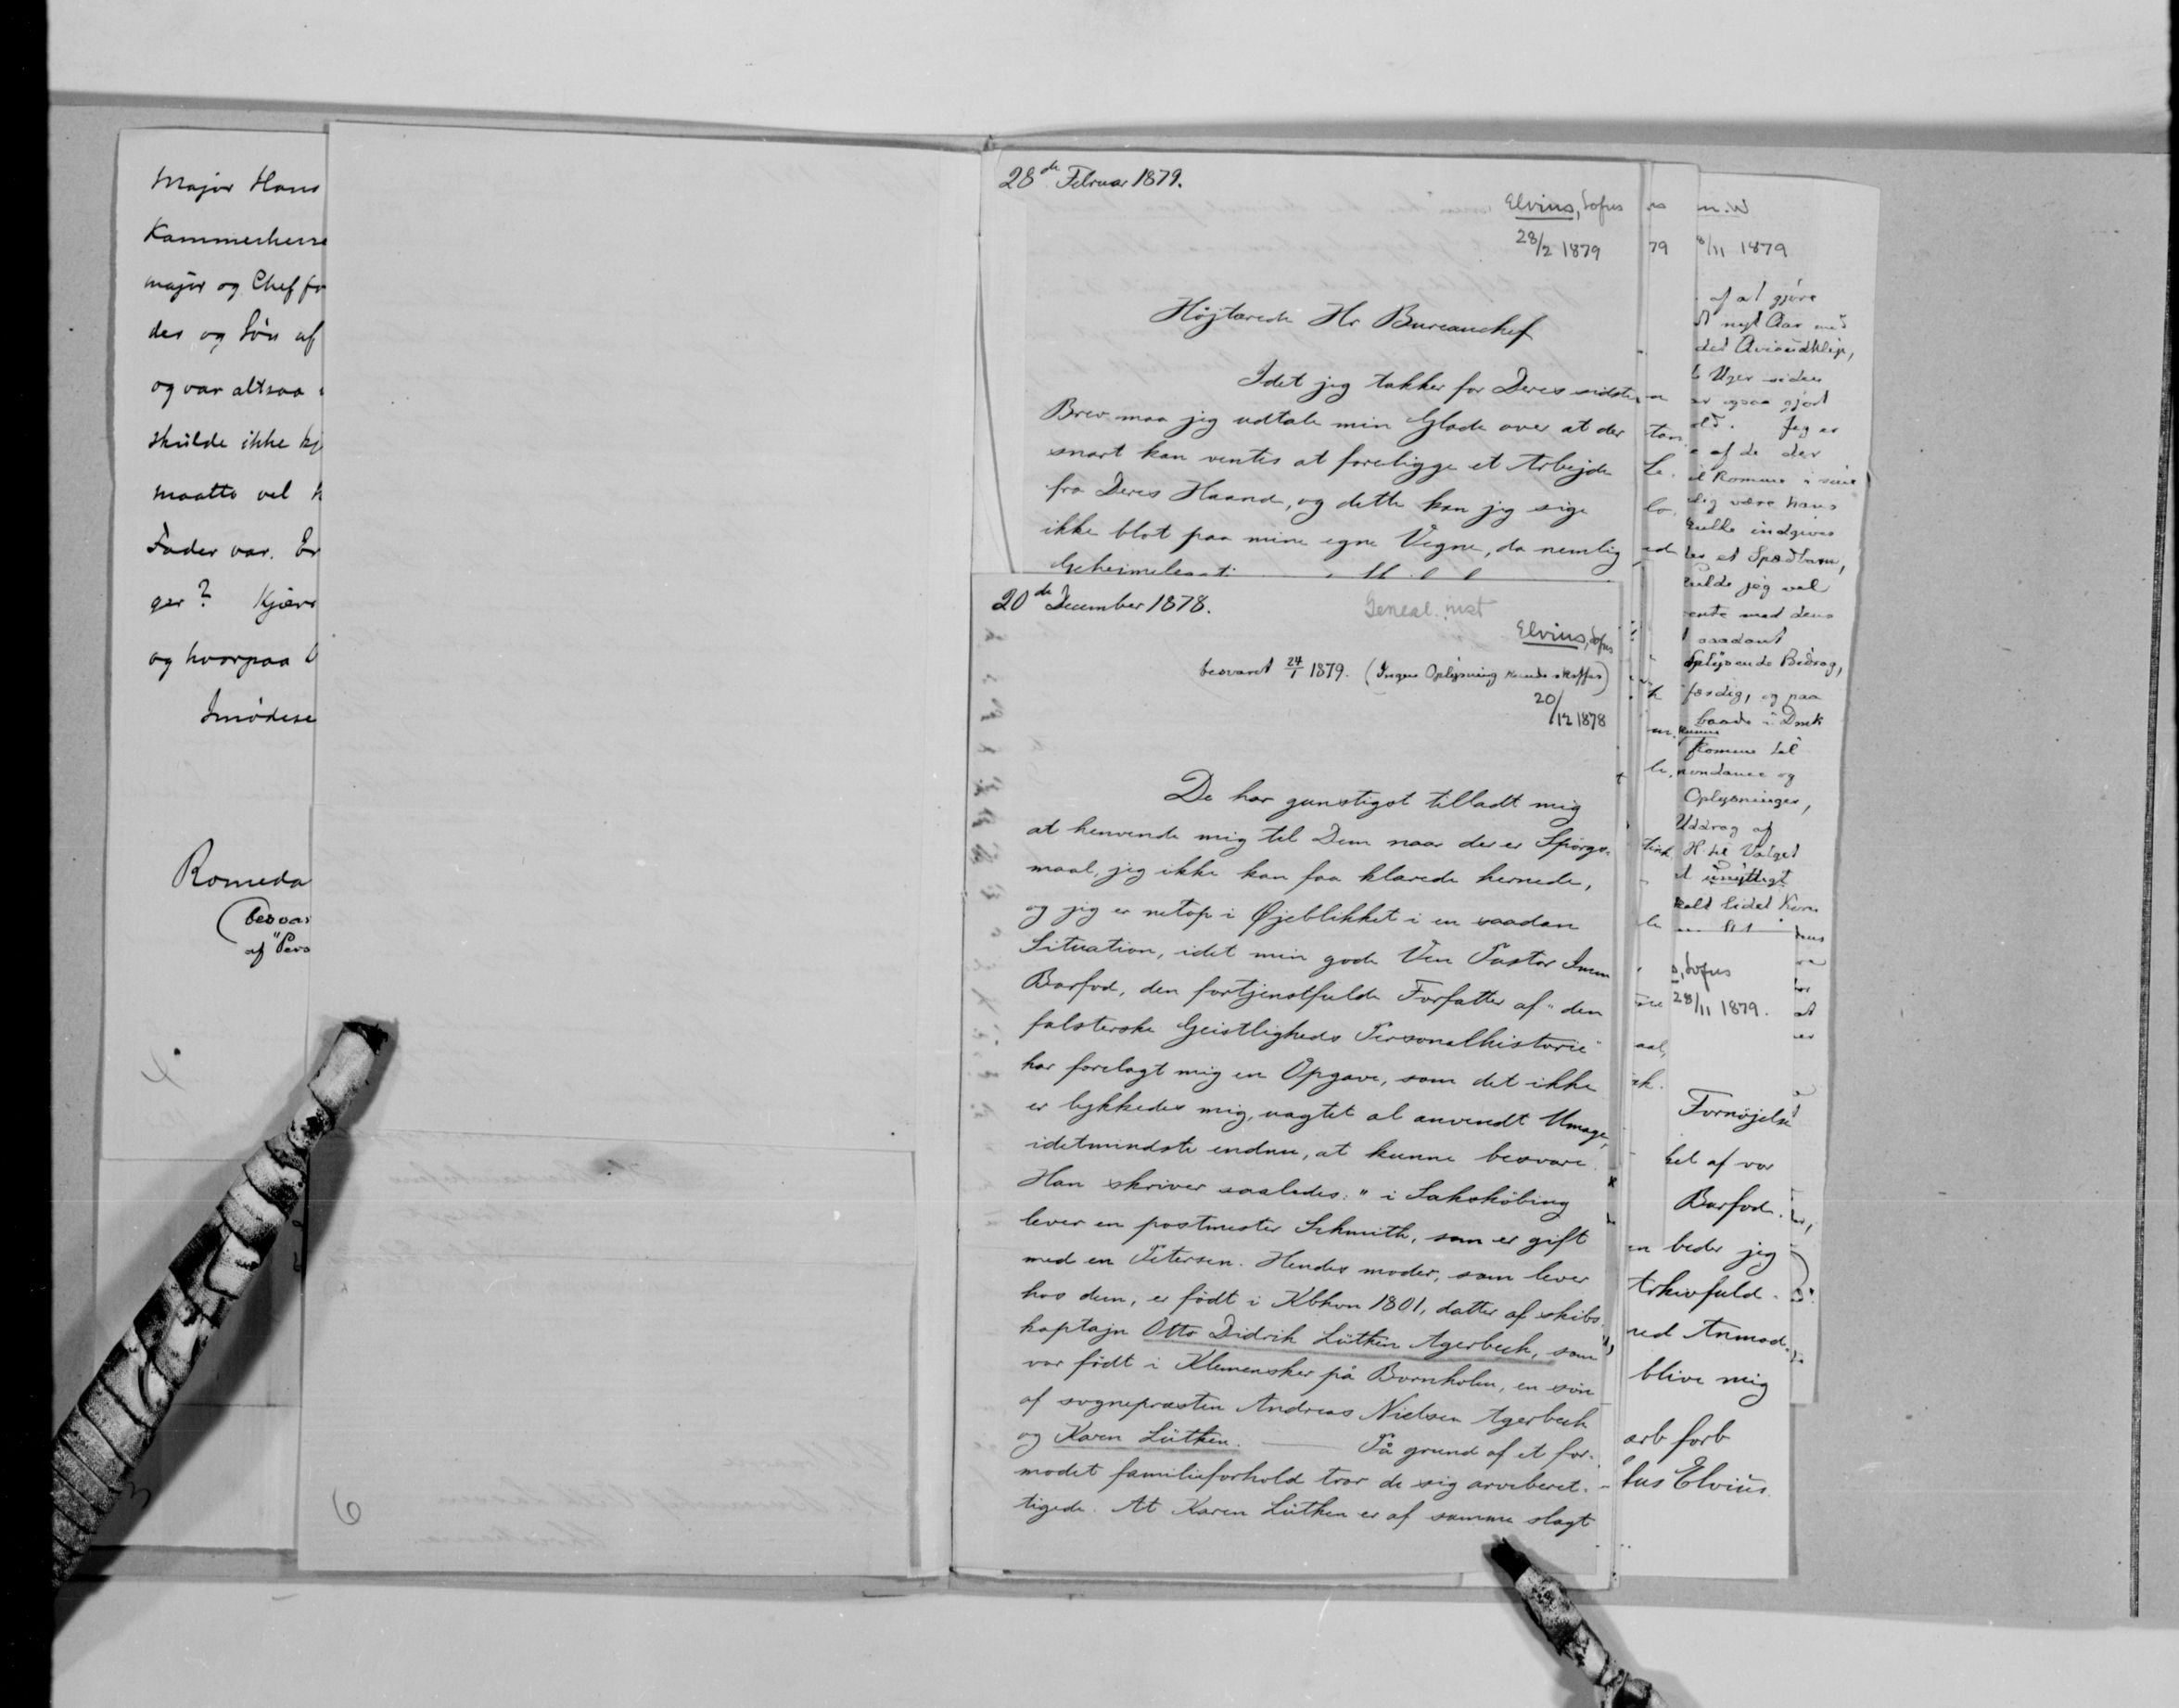 Major Hans
Kammerherre
major og Chef for
des og Søn af
og var altsaa
skulde ikke kj
maatte vel
Fader var. Er
ger? Kjære
og hvorpaa
Imødese
Romeda
(besvar
af "Pers
6
28de Februar 1879.
Elvius, Sofus
28/2 1879
Højtærede Hr Bureauchef
Idet jeg takker for Deres sidste
Brev maa jeg udtale min Glæde over at der
snart kan ventes at foreligge et Arbejde
fra Deres Haand, og dette kan jeg sige
ikke blot paa mine egne Vegne, da nemlig
20de December 1878.
Geneal. inst
Elvius, Sofus
besvaret 24/1 1879. (Ingen Oplysning kunde skaffes)
20/12 1878
De har gunstigst tilladt mig
at henvende mig til Dem naar der er Spørgs-
maal, jeg ikke kan faa klarede hernede,
og jeg er netop i Øjeblikket i en saadan
Situation, idet min gode Ven Pastor Imm
Barfod, den fortjenstfulde Forfatter af "den
falsterske Geistligheds Personalhistorie"
har forelagt mig en Opgave, som det ikke
er lykkedes mig, uagtet al anvendt Umage,
idetmindste endnu, at kunne besvare.
Han skriver saaledes: "i Sakskøbing
lever en postmester Schmith, som er gift
med en Petersen. Hendes moder, som lever
hos dem, er født i Kbhvn 1801, datter af skibs-
kaptajn Otto Didrik Lütken Agerbech, som
var født i Klemensker på Bornholm, en søn
af sognepræsten Andreas Nielsen Agerbech
og Karen Lütken. — På grund af et for-
modet familieforhold tror de sig arveberet-
tigede. At Karen Lütken er af samme slægt
es
79
tan
Le.
ed
aal,
en beder jeg
Arkivfuld-
ned Anmod-
blive mig
ærb forb
fus Elvius.
8/11 1879
af at gjøre
nyt Aar med
det Avisudklip,
Uger siden
ar ogsaa gjort
Jeg er
af de der
komme i
være hans
indgives
et Spædbarn,
jeg vel
med den
saadant
oplysende Bidrag,
færdig, og paa
baade i Druk
komme til
Oplysninger,
Uddrag af
H. til Valget
unyttigt
s, Sofus
28/11 1879.
Fornøjelse
hel af vor
Barfod.